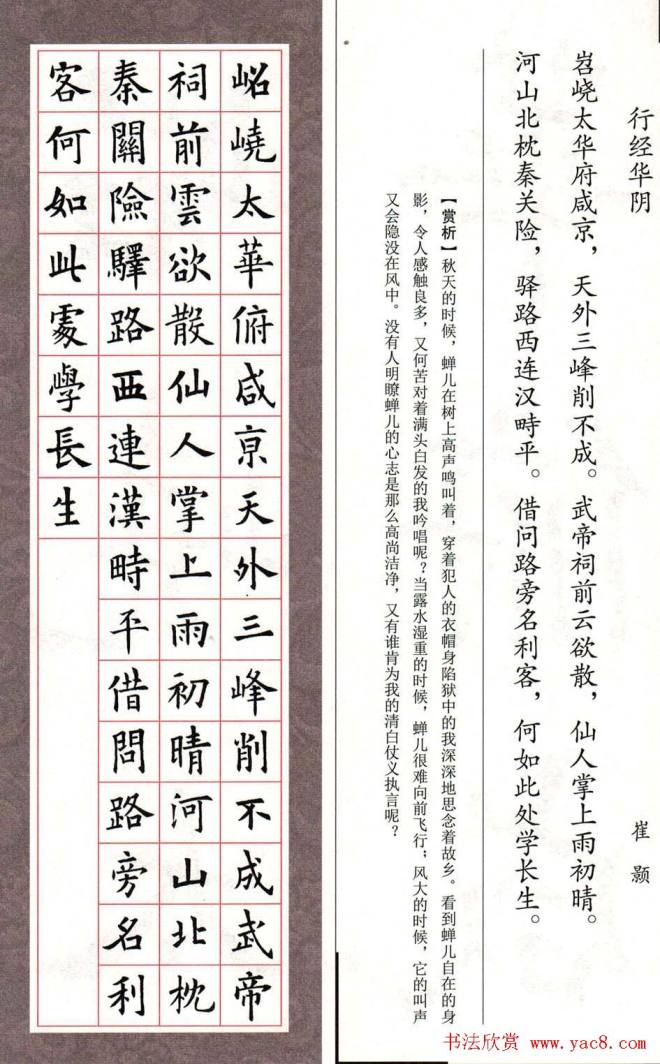 行经华阴
崔颢
岧峣太华府咸京，天外三峰削不成。武帝祠前云欲散，仙人掌上雨初晴。
河山北枕秦关险，驿路西连汉畤平。借问路旁名利客，何如此处学长生。
【赏析】秋天的时候，蝉儿在树上高声鸣叫着，穿着犯人的衣帽身陷狱中的我深深地思念着故乡。看到蝉儿自在的身
影，令人感触良多，又何苦对着满头白发的我吟唱呢？当露水湿重的时候，蝉儿很难向前飞行；风大的时候，它的叫声
又会隐没在风中。没有人明瞭蝉儿的心志是那么高尚洁净，又有谁肯为我的清白仗义执言呢？
岹嶢太華俯咸亰天外三峰削不成武帝
祠前雲欲散仙人掌上雨初晴河山北枕
秦關險驛路西連漢時平借問路旁名利
客何如此處學長生
书法欣赏 www.yac8.com